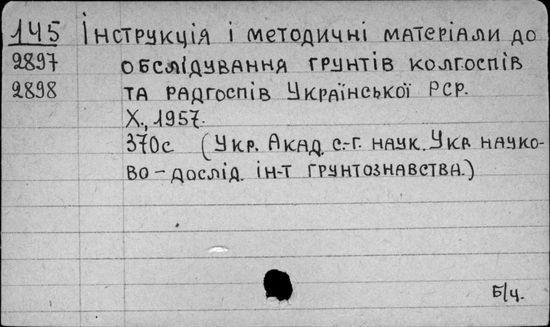 145 Інструкція і методичні матеріали до
2897 обслідування грунтів колгоспів
2898 та радгоспів Української РСР.
Х., 1957.
370с (Укр. Акад. с.-г. наук. Укр науко-
во-дослід. ін-т грунтознавства.)
Б/ч.